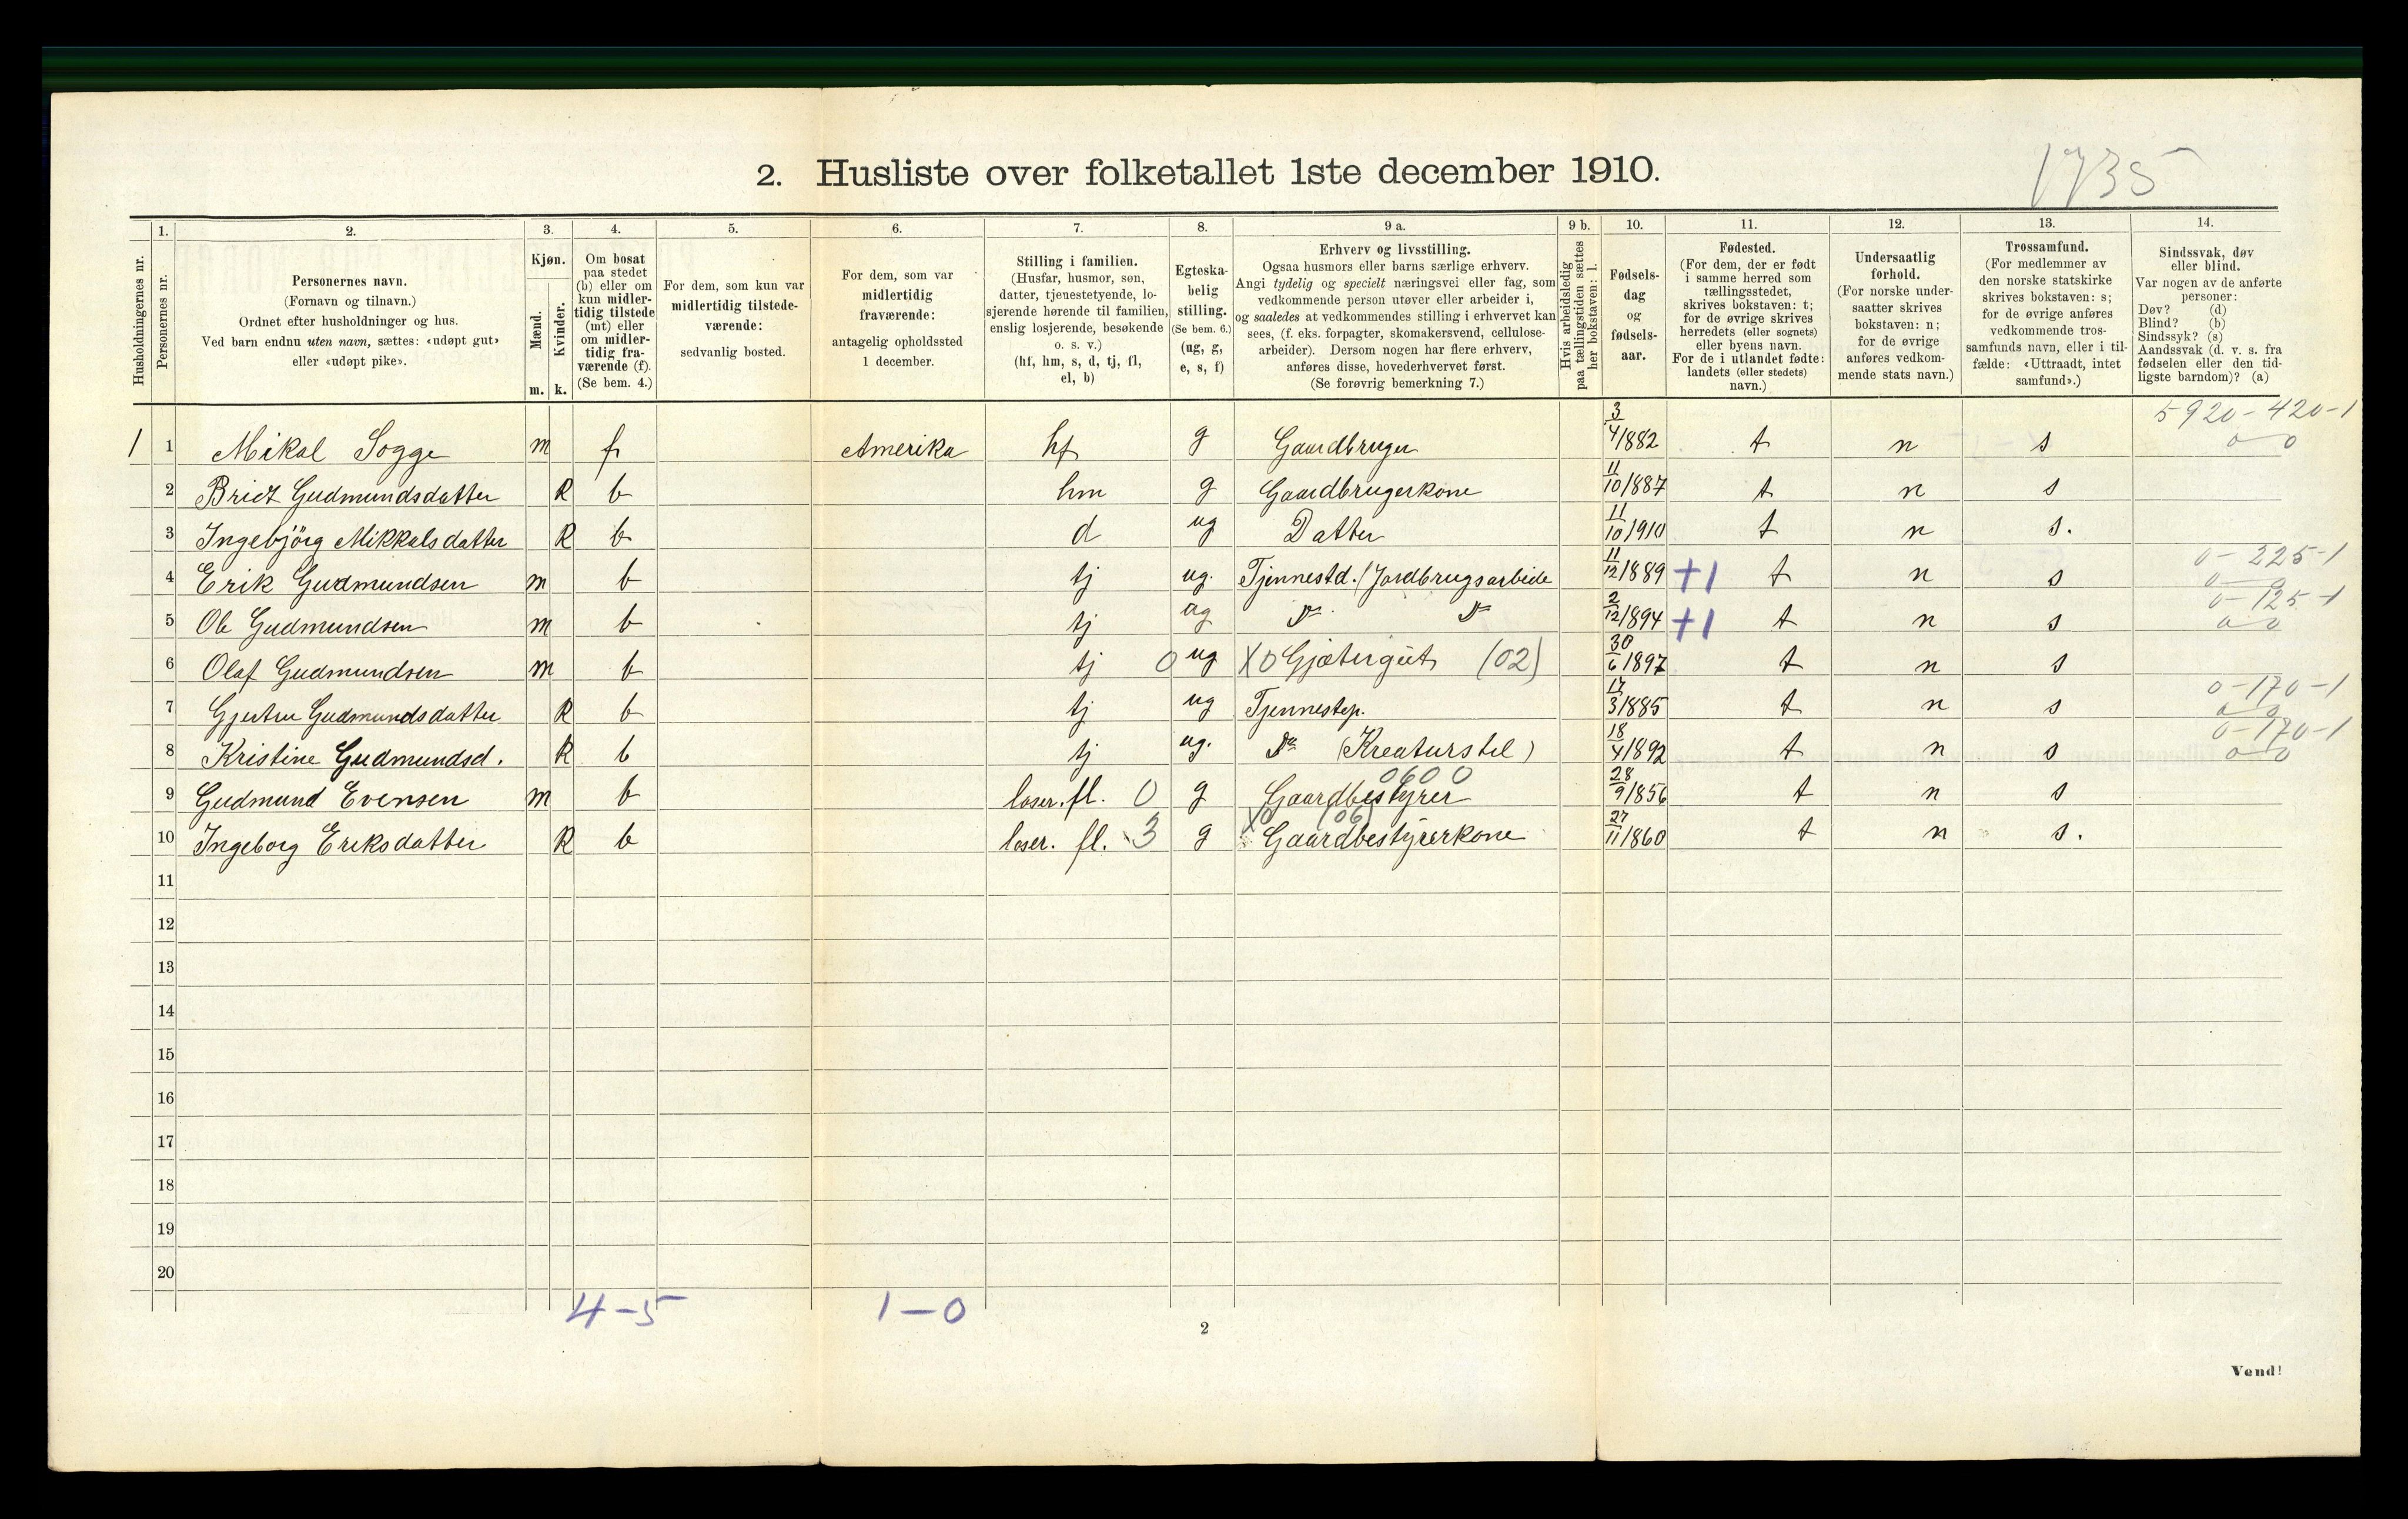 1735
2. Husliste over folketallet 1ste december 1910.
1. 2. 3. 4. 5. 6. 7. 8. 9 a. 9 b. 10. 11. 12. 13. 14.
Husholdningernes nr.
Personernes nr.
Personernes navn.
(Fornavn og tilnavn.)
Ordnet efter husholdninger og hus.
Ved barn endnu uten navn, sættes: «udøpt gut»
eller «udøpt pike».
Kjøn.
Mænd.
Kvinder.
m. k.
Om bosat
paa stedet
(b) eller om
kun midler-
tidig tilstede
(mt) eller
om midler-
tidig fra-
værende (f).
(Se bem. 4.)
For dem, som kun var
midlertidig tilstede-
værende:
sedvanlig bosted.
For dem, som var
midlertidig
fraværende:
antagelig opholdssted
1 december.
Stilling i familien.
(Husfar, husmor, søn,
datter, tjenestetyende, lo-
sjerende hørende til familien,
enslig losjerende, besøkende
o. s. v.)
(hf, hm, s, d, tj, fl,
el, b)
Egteska-
belig
stilling.
(Se bem. 6.)
(ug, g,
e, s, f)
Erhverv og livsstilling.
Ogsaa husmors eller barns særlige erhverv.
Angi tydelig og specielt næringsvei eller fag, som
vedkommende person utøver eller arbeider i,
og saaledes at vedkommendes stilling i erhvervet kan
sees, (f. eks. forpagter, skomakersvend, cellulose-
arbeider). Dersom nogen har flere erhverv,
anføres disse, hovederhvervet først.
(Se forøvrig bemerkning 7.)
Hvis arbeidsledig
paa tællingstiden sættes
her bokstaven: l.
Fødsels-
dag
og
fødsels-
aar.
Fødested.
(For dem, der er født
i samme herred som
tællingsstedet,
skrives bokstaven: t;
for de øvrige skrives
herredets (eller sognets)
eller byens navn.
For de i utlandet fødte:
landets (eller stedets)
navn.)
Undersaatlig
forhold.
(For norske under-
saatter skrives
bokstaven: n;
for de øvrige
anføres vedkom-
mende stats navn.)
Trossamfund.
(For medlemmer av
den norske statskirke
skrives bokstaven: s;
for de øvrige anføres
vedkommende tros-
samfunds navn, eller i til-
fælde: «Uttraadt, intet
samfund».)
Sindssvak, døv
eller blind.
Var nogen av de anførte
personer:
Døv? (d)
Blind? (b)
Sindssyk? (s)
Aandssvak (d. v. s. fra
fødselen eller den tid-
ligste barndom)? (a)
5920-420-1
1 1 Mikal Sogge m f Amerika hf g Gaardbruger 3/4 1882 t n s 0 0
2 Brict Gudmundsdatter K b hm g Gaardbrugerkone 11/10 1887 t n s
3 Ingebjörg Mikkalsdatter K b d ug Datter 11/10 1910 t n s.
0-225-1
4 Erik Gudmundsen m b tj ug. Tjennestd. (Jordbrugsarbeide 11/12 1889 +1 t n s 0 0
0-125-1
5 Ole Gudmundsen m b tj ug Do Do 2/12 1894 +1 t n s 0 0
6 Olaf Gudmundsen m b tj 0 ug X0 Gjætergut (02) 30/6 1897 t n s
0-170-1
7 Gjertru Gudmundsdatter K b tj ug Tjennestep. 17/3 1885 t n s 0 0
0-170-1
8 Kristine Gudmundsd. K b tj ug. Do (Kreaturstel) 18/4 1892 t n s 0 0
0600
9 Gudmund Evensen m b loser. fl. 0 g Gaardbestyrer 28/9 1856 t n s
X0 (06)
10 Ingeborg Eriksdatter K b loser. fl. 3 g Gaardbestyrerkone 27/11 1860 t n s.
11
12
13
14
15
16
17
18
19
20
4-5 1-0
2
Vend!